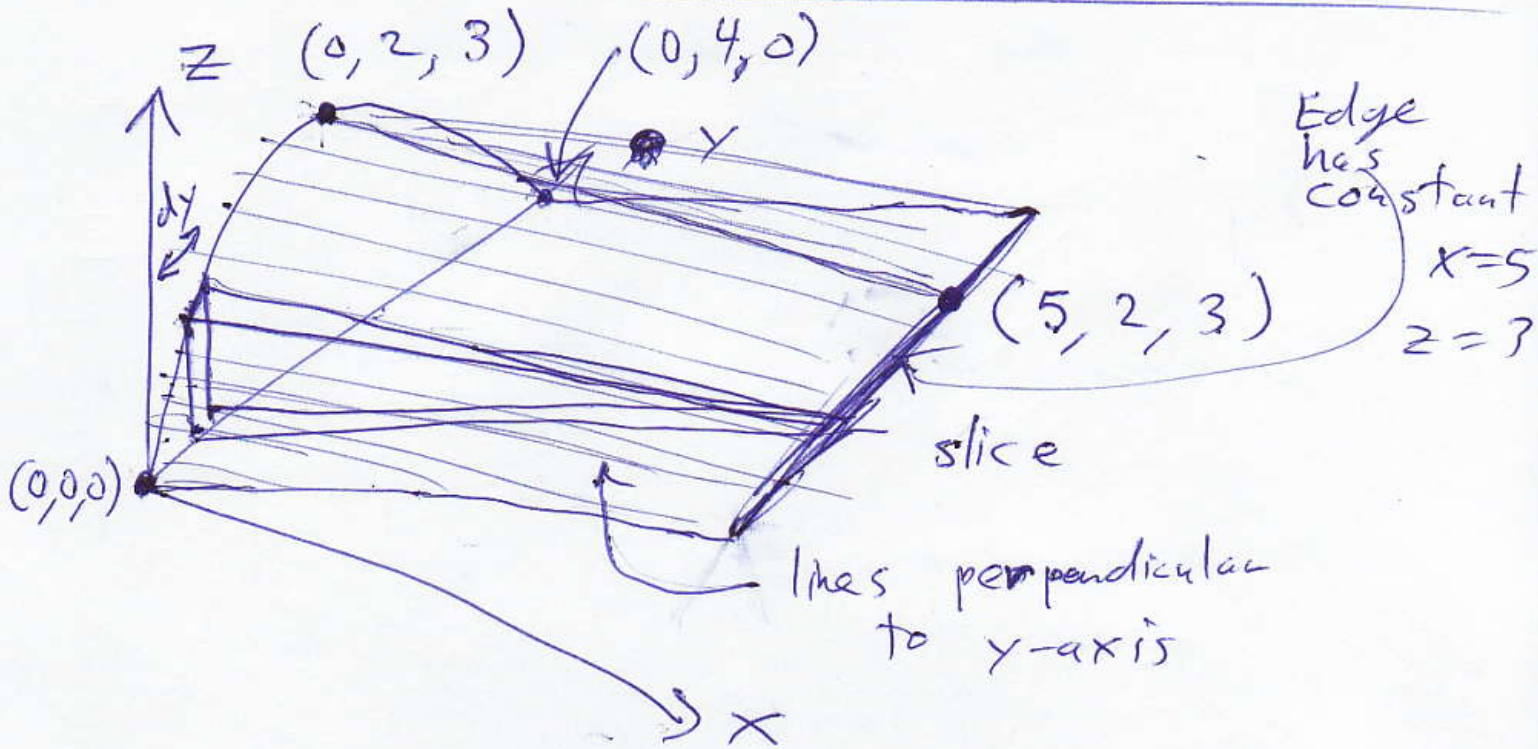 (0, 2, 3)
(0, 4, 0)
Z
Y
dy
Edge
has
constant
x=5
z=3
(5, 2, 3)
(0,0,0)
slice
lines perpendicular
to y-axis
X